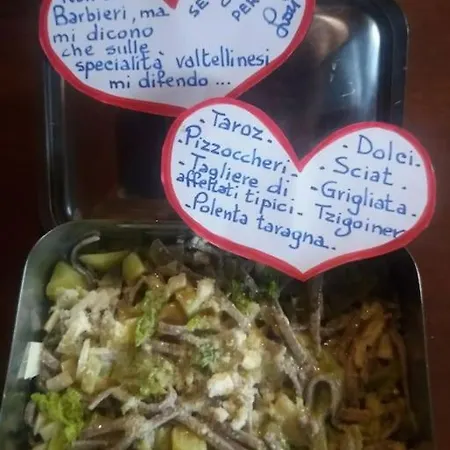 Barbieri, ma
mi dicono
che sulle
specialità valtellinesi
mi difendo ...
- Taroz -
- Pizzoccheri -
- Tagliere di
affettati tipici -
- Polenta taragna..
- Dolci -
- Sciat -
- Grigliata -
- Tzigoiner